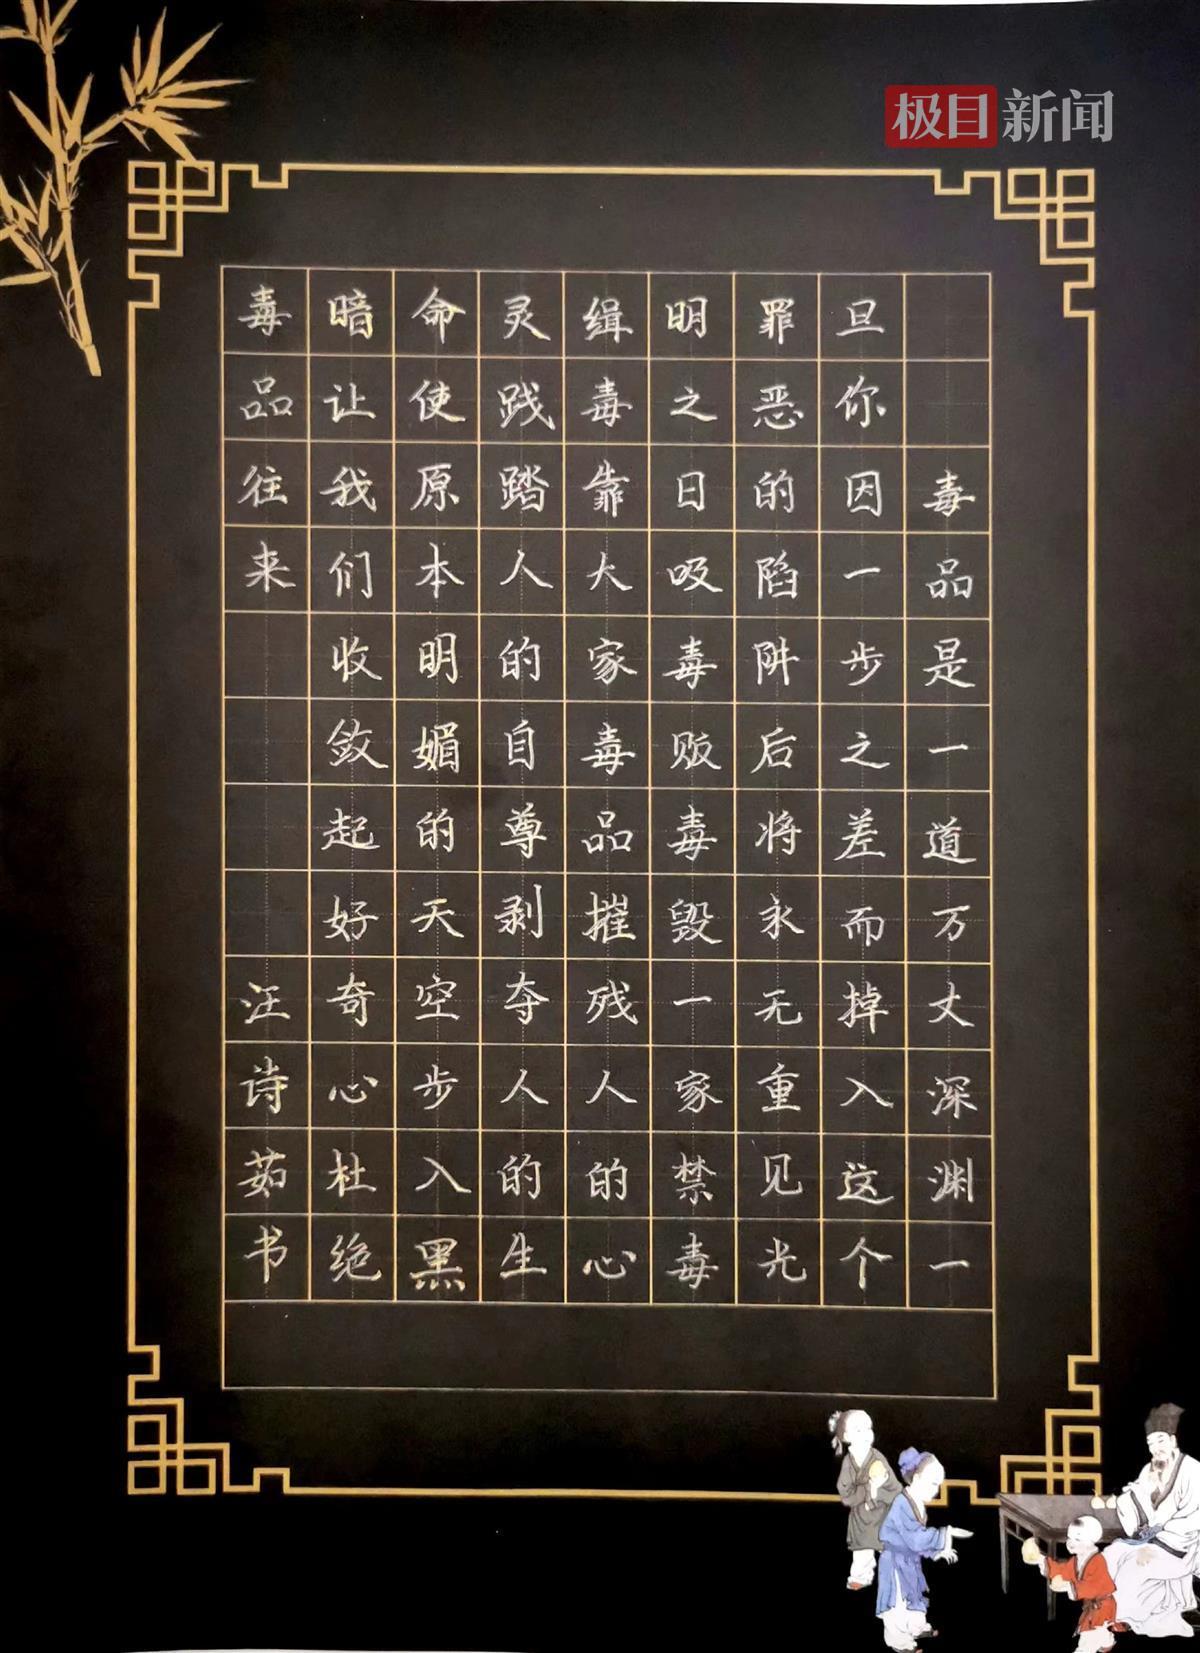 极目新闻
毒品是一道万丈深渊一
旦你因一步之差而掉入这个
罪恶的陷阱后将永无重见光
明之日吸毒贩毒毁一家禁毒
缉毒靠大家毒品摧残人的心
灵践踏人的自尊剥夺人的生
命使原本明媚的天空步入黑
暗让我们收敛起好奇心杜绝
毒品往来
汪诗茹书